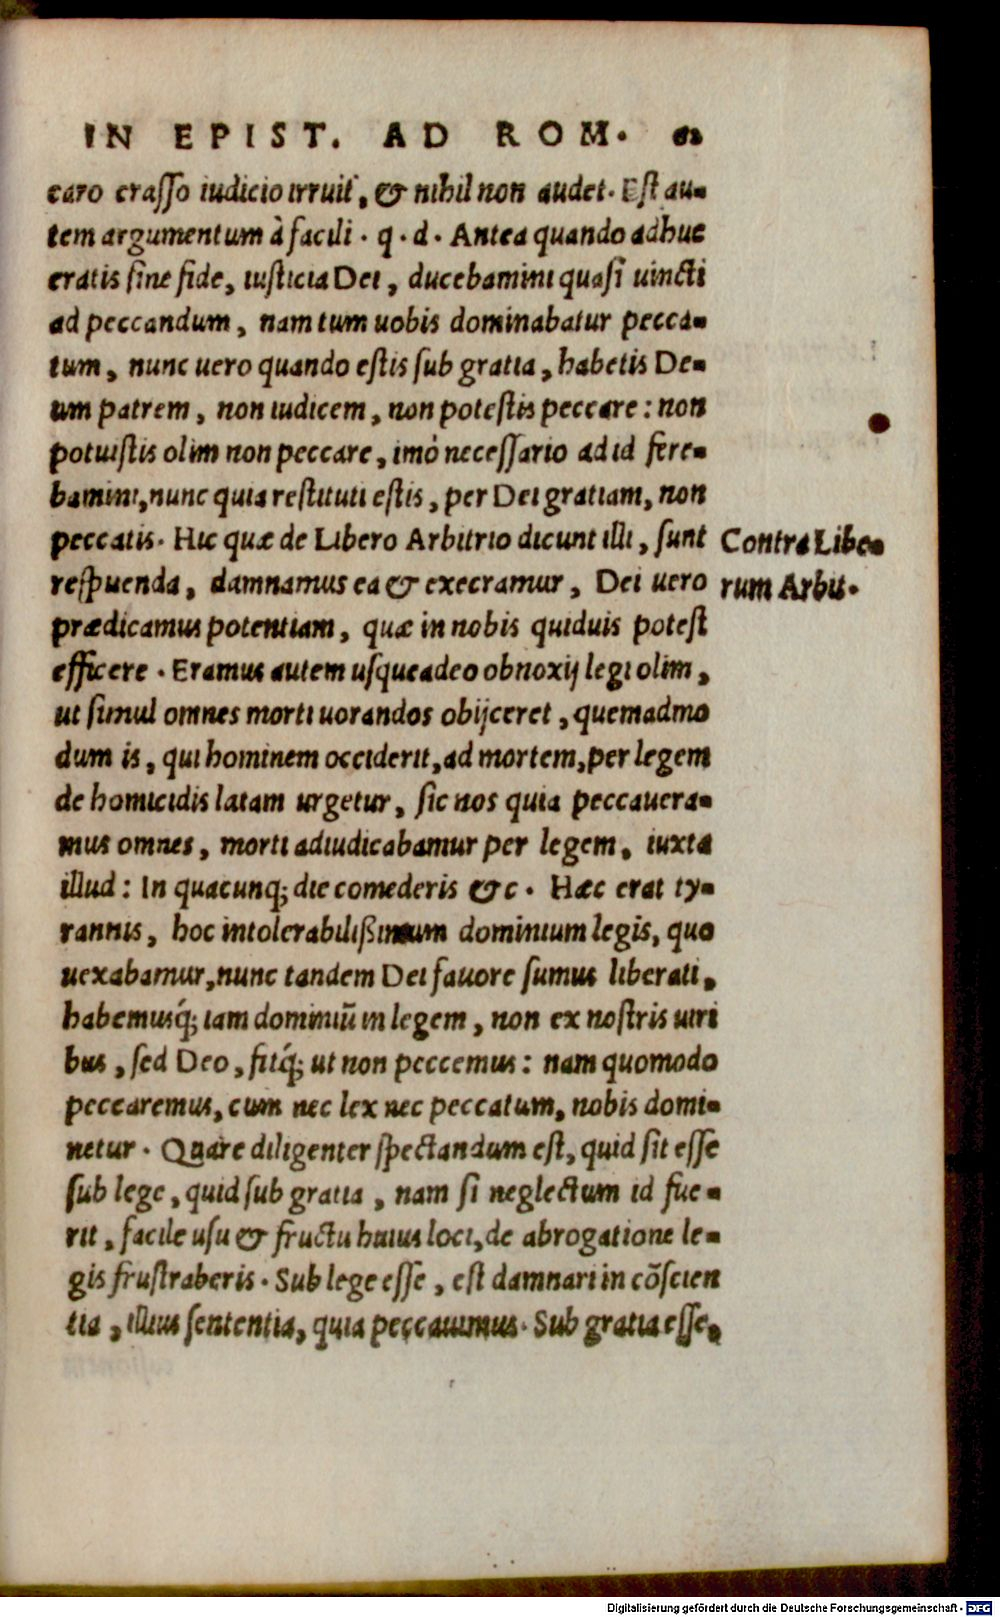 IN EPIST. AD ROM. 61
caro crasso iudicio irruit, & nihil non audet. Est au-
tem argumentum à facili. q. d. Antea quando adhuc
eratis sine fide, iusticia Dei, ducebamini quasi uincti
ad peccandum, nam tum uobis dominabatur pecca-
tum, nunc uero quando estis sub gratia, habetis De-
um patrem, non iudicem, non potestis peccare: non
potuistis olim non peccare, imò necessario ad id fere-
bamini, nunc quia restituti estis, per Dei gratiam, non
peccatis. Hic quæ de Libero Arbitrio dicunt illi, sunt
respuenda, damnamus ea & execramur, Dei uero
prædicamus potentiam, quæ in nobis quiduis potest
efficere. Eramus autem usqueadeo obnoxij legi olim,
ut simul omnes morti uorandos obijceret, quemadmo
dum is, qui hominem occiderit, ad mortem, per legem
de homicidis latam urgetur, sic nos quia peccauera-
mus omnes, morti adiudicabamur per legem, iuxta
illud: In quacunq; die comederis &c. Hæc erat ty-
rannis, hoc intolerabilißimum dominium legis, quo
uexabamur, nunc tandem Dei fauore sumus liberati,
habemusq́; iam dominiū in legem, non ex nostris uiri
bus, sed Deo, fitq́; ut non peccemus: nam quomodo
peccaremus, cum nec lex nec peccatum, nobis domi-
netur. Quare diligenter spectandum est, quid sit esse
sub lege, quid sub gratia, nam si neglectum id fue-
rit, facile usu & fructu huius loci, de abrogatione le-
gis frustraberis. Sub lege esse, est damnari in cōscien
tia, illius sententia, quia peccauimus. Sub gratia esse,
Contra Libe-
rum Arbit.
Digitalisierung gefördert durch die Deutsche Forschungsgemeinschaft - DFG